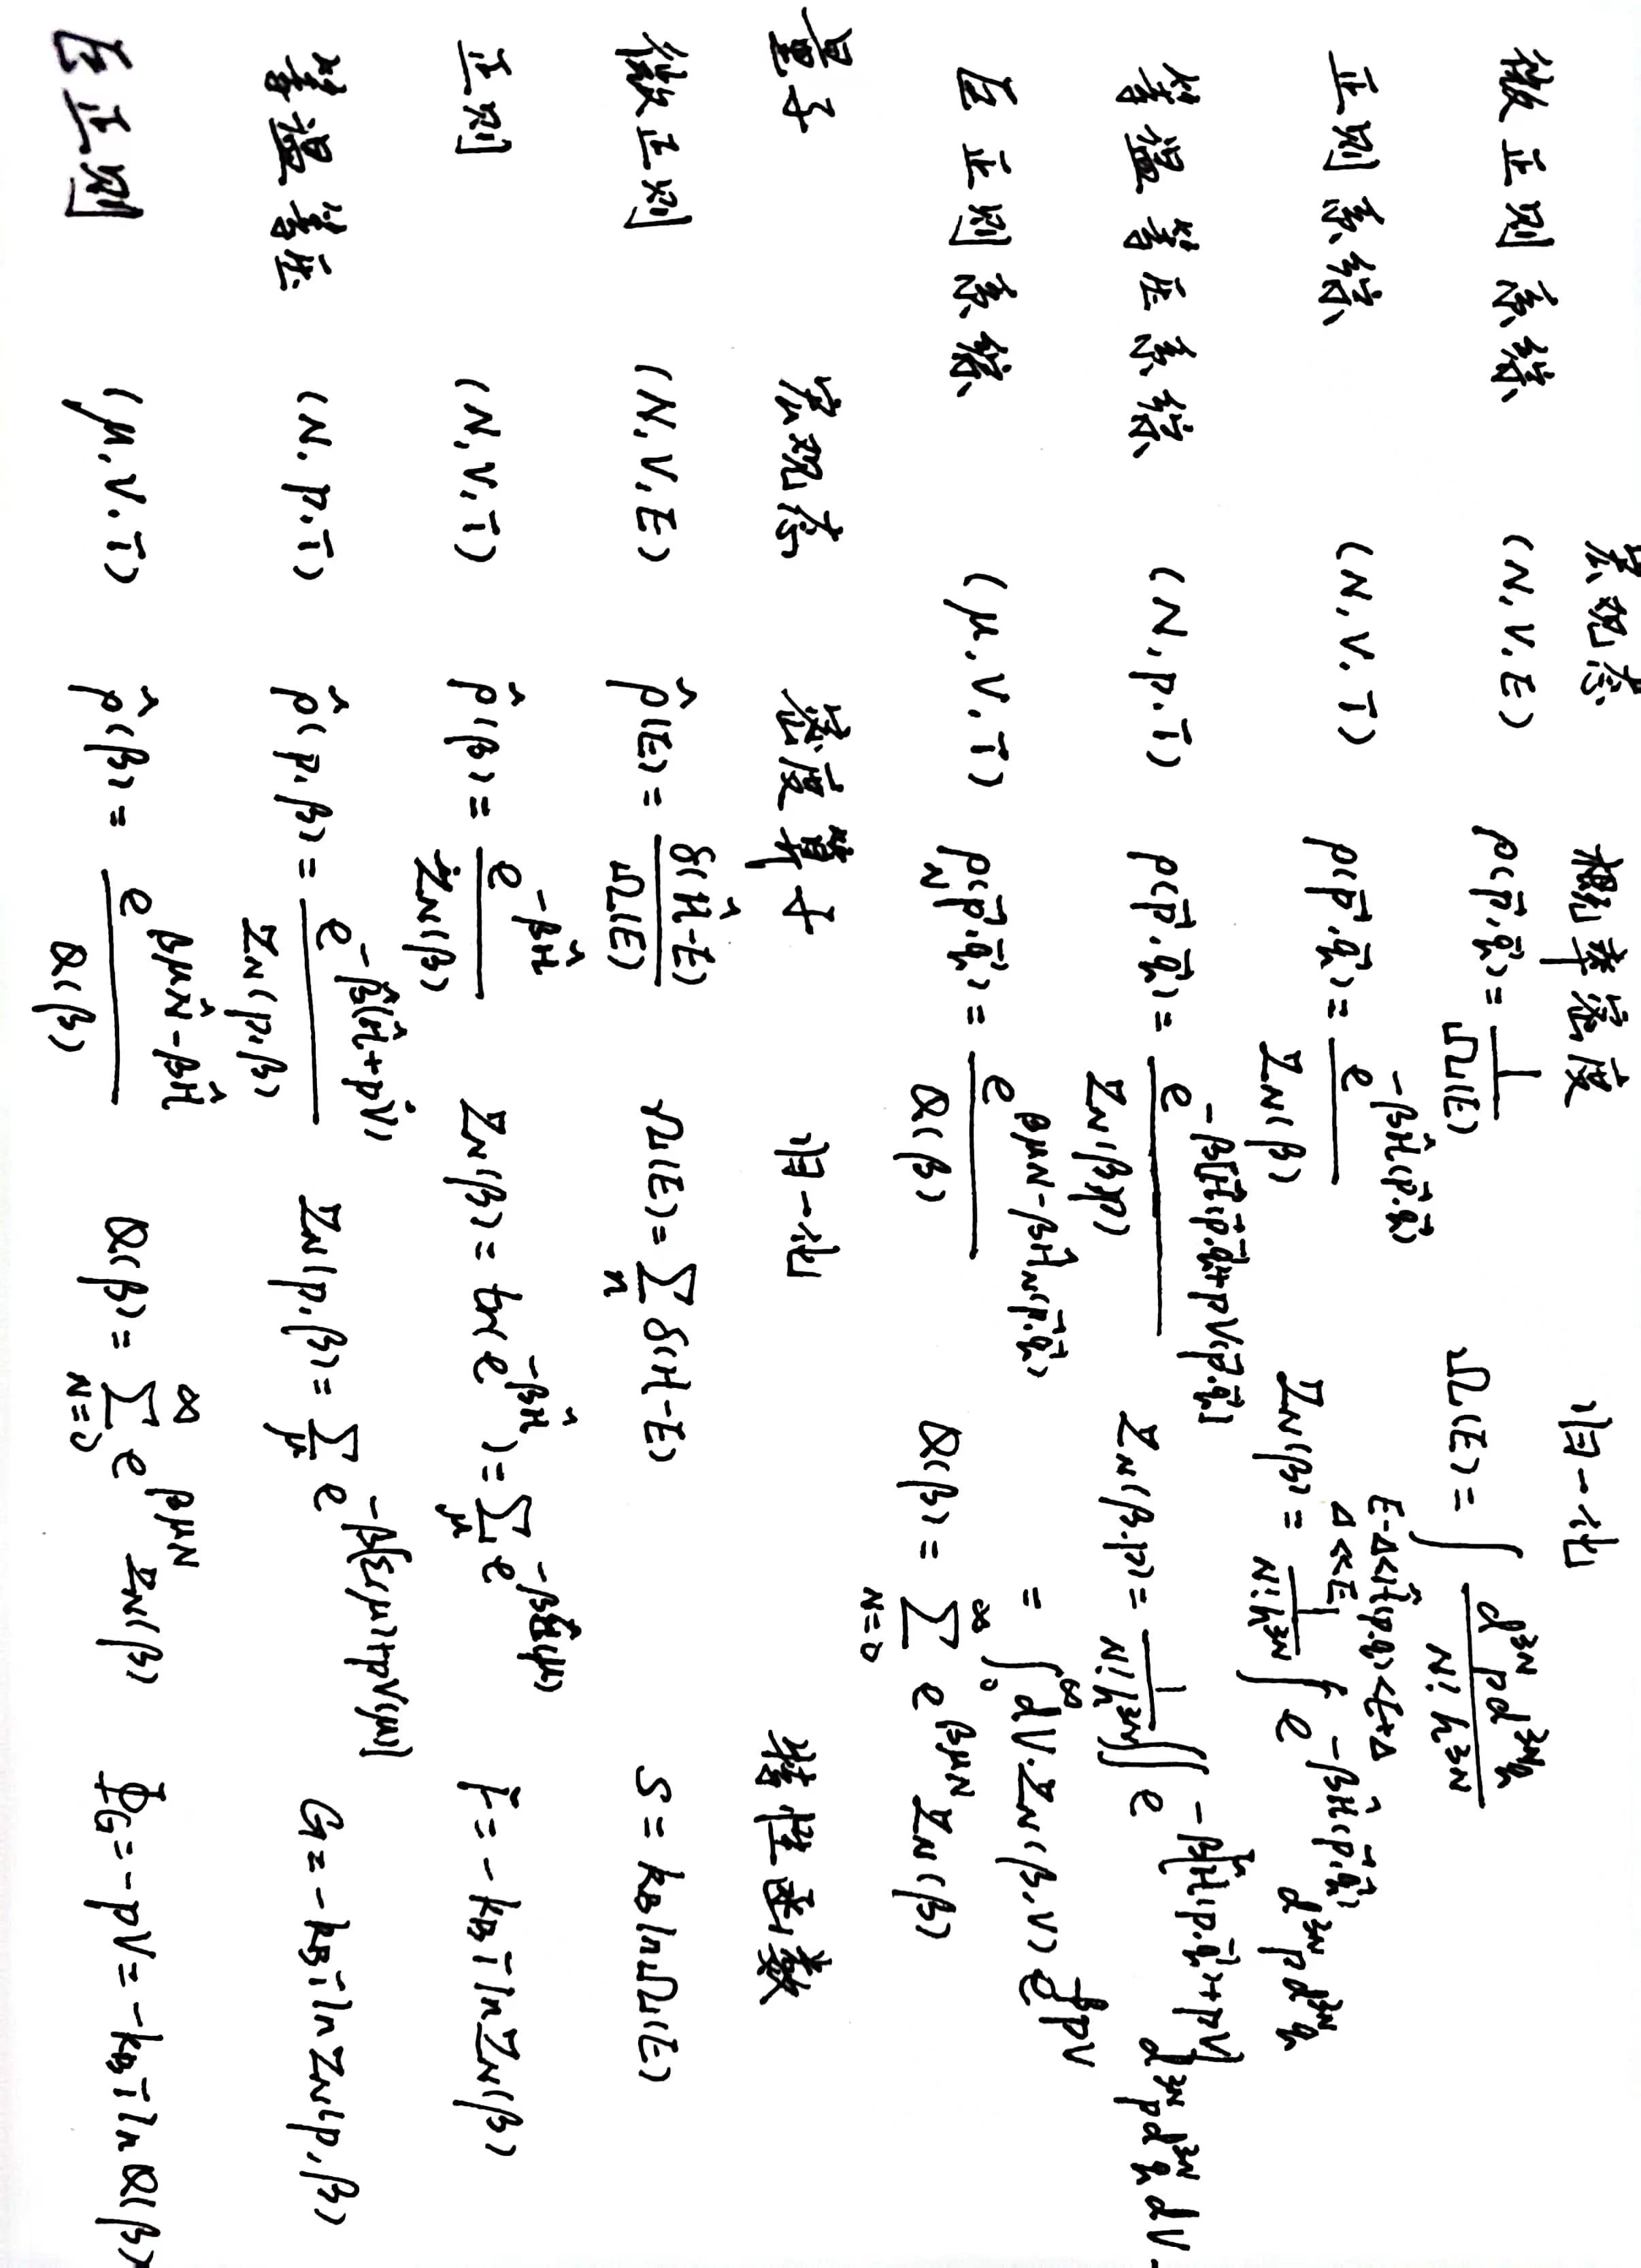 宏观态 概率密度 归一化
微正则系综 (N, V, E) ρ(p⃗, q⃗) = 1/Ω(E) Ω(E) = ∫ d³ᴺp d³ᴺq / N! h³ᴺ
E-Δ<Ĥ(p,q)<E+Δ
Δ≪E
正则系综 (N, V, T) ρ(p⃗, q⃗) = e^{-βĤ(p⃗, q⃗)} / Z_N(β) Z_N(β) = 1/(N! h³ᴺ) ∫ e^{-βĤ(p⃗, q⃗)} d³ᴺp d³ᴺq
等温等压系综 (N, p, T) ρ(p⃗, q⃗) = e^{-β[Ĥ(p⃗, q⃗)+pV(p⃗, q⃗)]} / Z_N(β,p) Z_N(β, p) = 1/(N! h³ᴺ) ∬ e^{-β[Ĥ(p⃗, q⃗)+pV]} d³ᴺp d³ᴺq dV
= ∫₀^∞ dV · Z_N(β, V) e^{-βpV}
巨正则系综 (μ, V, T) ρ_N(p⃗, q⃗) = e^{βμN-βĤ_N(p⃗, q⃗)} / Q(β) Q(β) = ∑_{N=0}^∞ e^{βμN} Z_N(β)
量子 宏观态 密度算子 归一化 特性函数
微正则 (N, V, E) ρ̂(E) = δ(Ĥ-E) / Ω(E) Ω(E) = ∑_n δ(H-E) S = k_B ln Ω(E)
正则 (N, V, T) ρ̂(β) = e^{-βĤ} / Z_N(β) Z_N(β) = tr(e^{-βĤ}) = ∑_μ e^{-βE(μ)} F = -k_B T ln Z_N(β)
等温等压 (N, p, T) ρ̂(p, β) = e^{-β(Ĥ+pV̂)} / Z_N(p, β) Z_N(p, β) = ∑_μ e^{-β[E(μ)+pV(μ)]} G = -k_B T ln Z_N(p, β)
巨正则 (μ, V, T) ρ̂(β) = e^{βμN̂-βĤ} / Q(β) Q(β) = ∑_{N=0}^∞ e^{βμN} Z_N(β) Φ_G = -pV = -k_B T ln Q(β)